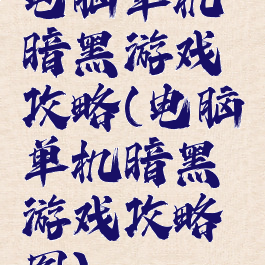 电脑单机
暗黑游戏
攻略(电脑
单机暗黑
游戏攻略
图)